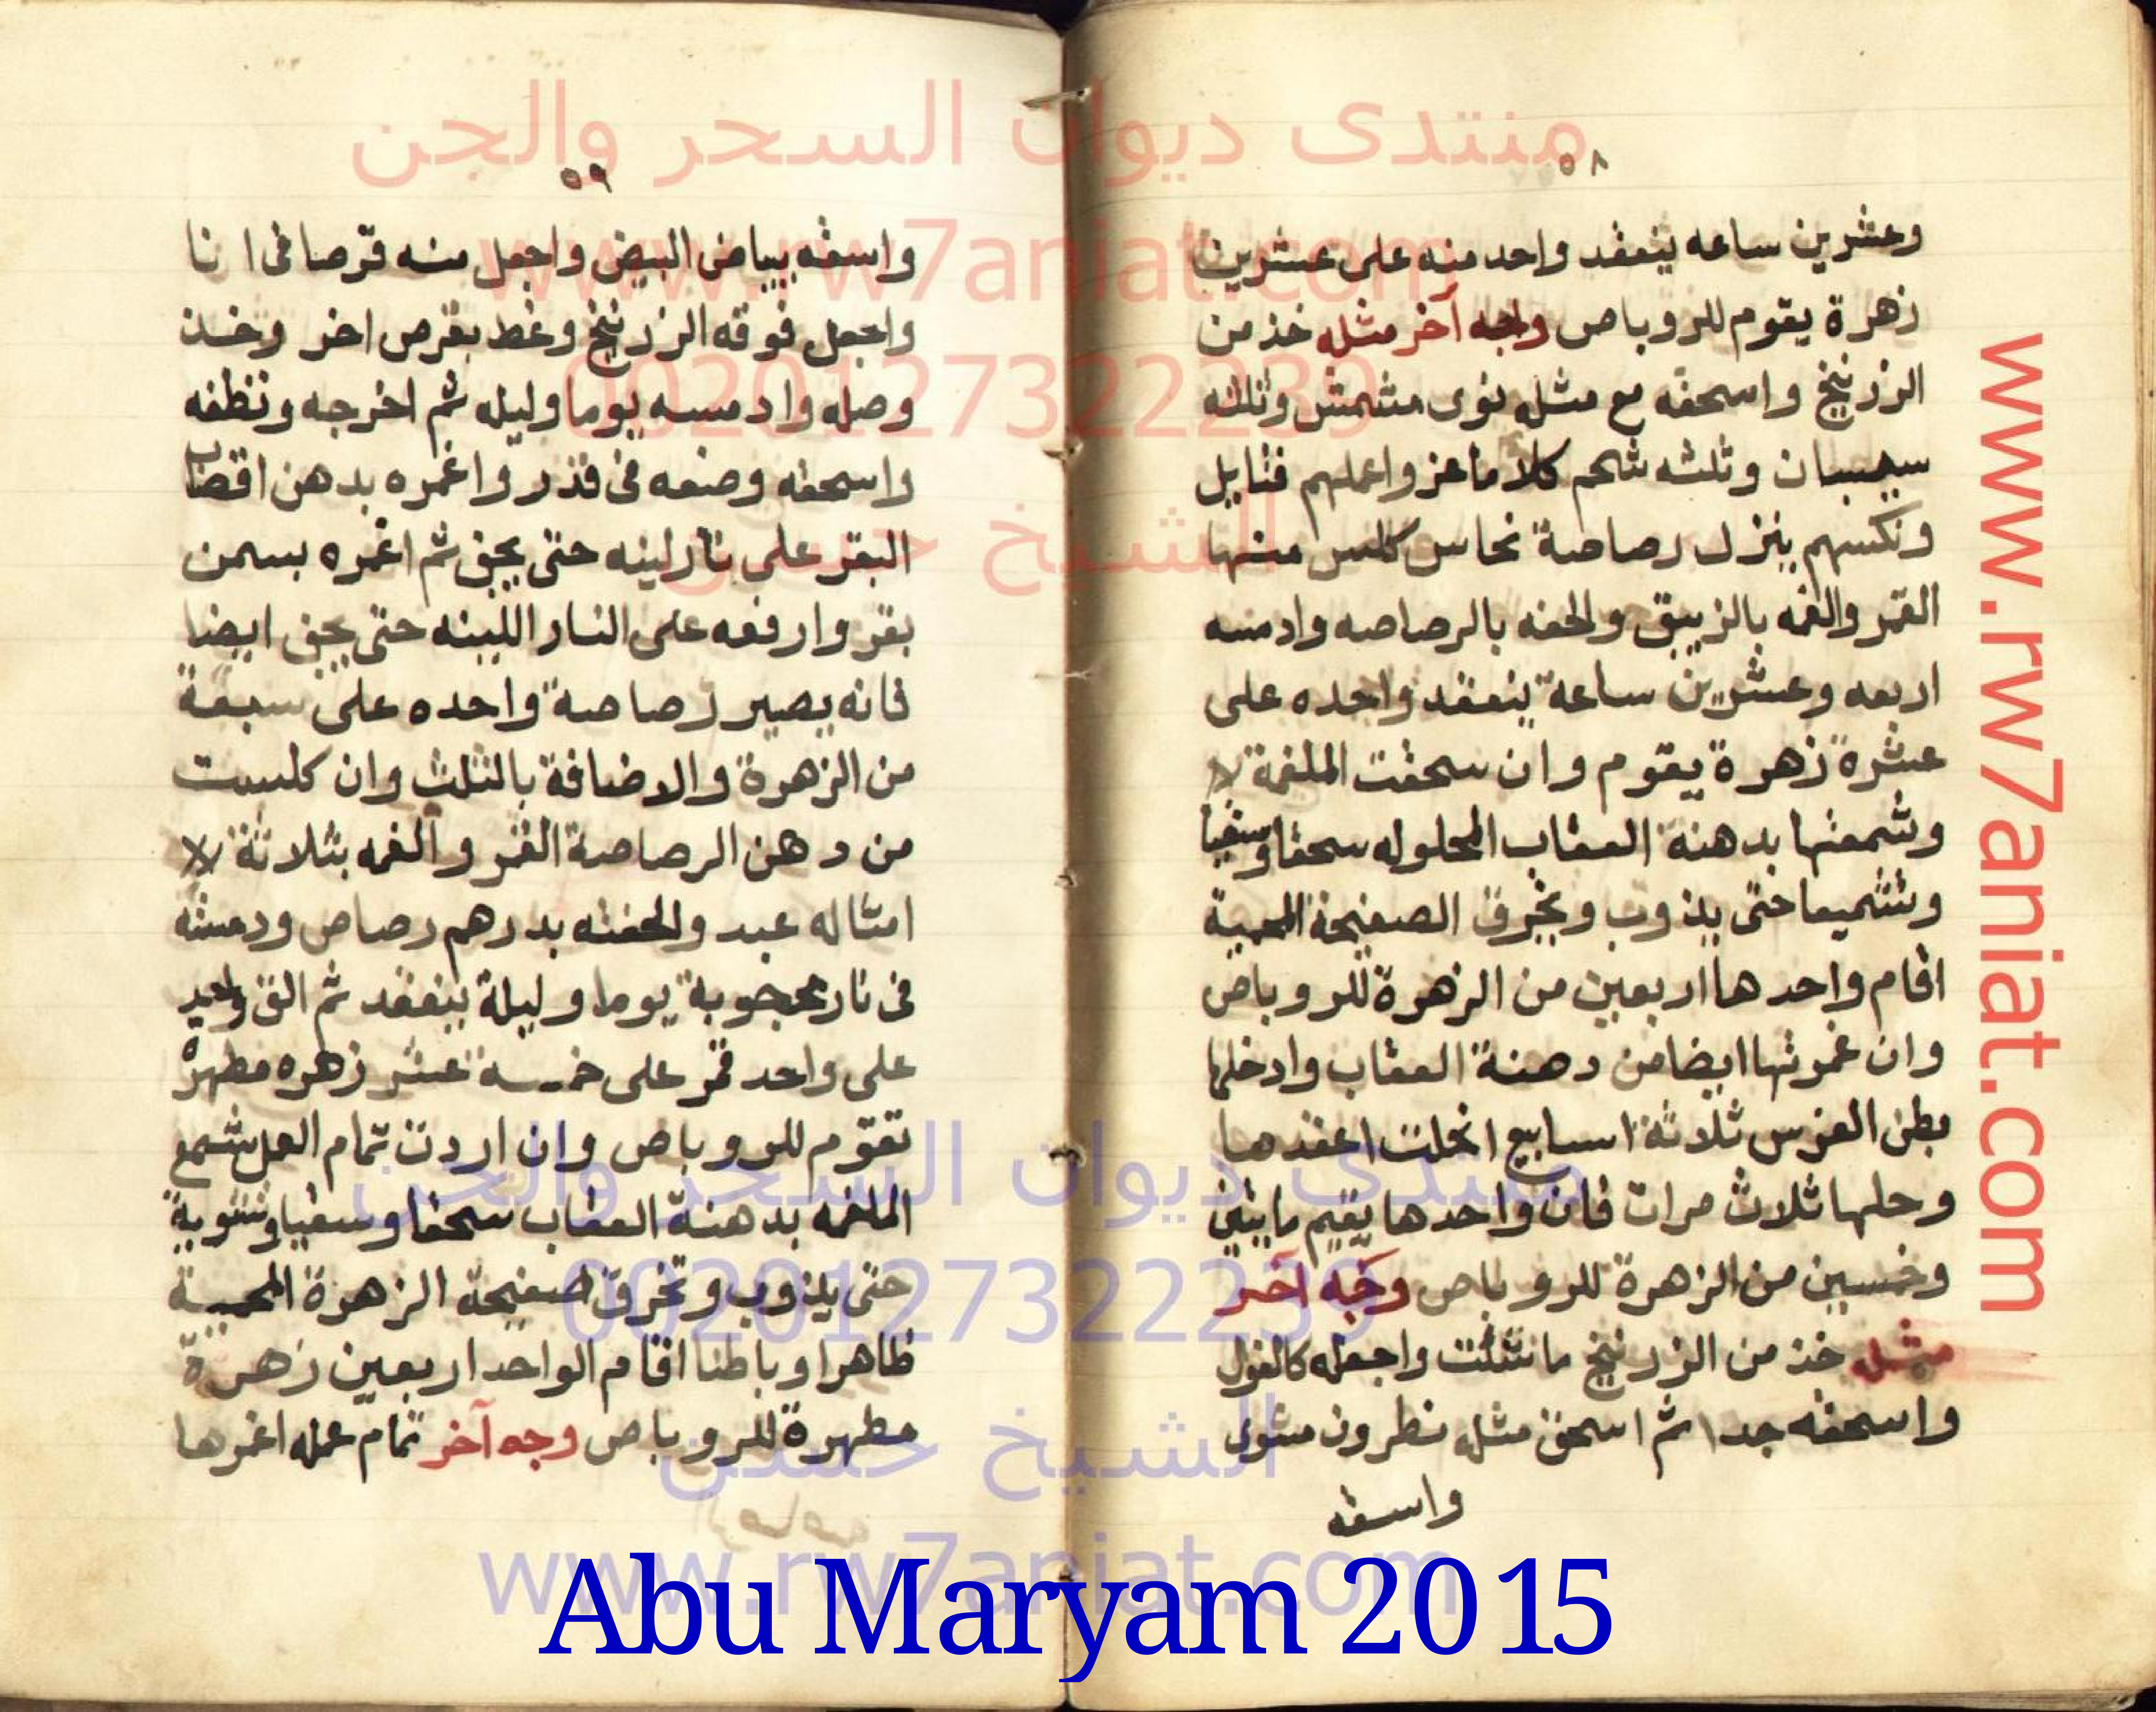 منتدى ديوان السحر والجن
www.rw7aniat.com
00201273322239
الشيخ حسن
٥٨
وعشرين ساعه ينعقد واحد منه على عشرين
زهرة يقوم للروباص وجه آخر مثله خذ من
الزرنيخ واسحقه مع مثله نوى مشمش وثلثه
سيسبان وثلثه شحم كلا ماعز واعملهم فتايل
ونكسهم ينزل رصاصة نحاس كلس منها
القمر والغمه بالزيبق والحقه بالرصاصه وادمسه
اربعه وعشرين ساعة ينعقد واحده على
عشرة زهرة يقوم وان سحقت الملغمة
وشمعتها بدهنة العقاب المحلوله سحقا وسقيا
وتشميعا حتى يذوب ويخرق الصفيحة المحمية
اقام واحدها اربعين من الزهرة للروباص
وان غمرتها ايضا من دهنة العقاب وادخلها
بطن الفرس ثلاثة اسابيع انحلت اعقدها
وحلها ثلاث مرات فان واحدها يقيم مايتين
وخمسين من الزهرة للروباص وجه آخر
مثله خذ من الزرنيخ ما شئت واجعله كالفول
واسحقه جدا ثم اسحق مثله نطرون مشوى
واسقه
٥٩
واسقه ببياض البيض واجعل منه قرصا فى انا
واجعل فوقه الزرنيخ وغط بقرص اخر وخذ
وصله وادمسه يوما وليله ثم اخرجه ونظفه
واسحقه وضعه فى قدر واغمره بدهن اقصاب
البقر على نار لينه حتى يجف ثم اغمره بسمن
بقر وارفعه على النار اللينه حتى يجف ايضا
فانه يصير رصاصة واحده على سبعة
من الزهرة والاضافة بالثلث وان كلست
من دهن الرصاصة القمر والغمه بثلاثة
امثاله عبد والحقته بدرهم رصاص ودمسته
فى نار محجوبة يوما وليلة ينعقد ثم الق واحد
على واحد قمر على خمسة عشر زهره مطهره
تقوم للروباص وان اردت تمام العمل شمع
الملغمه بدهنة العقاب سحقا وسقيا وتشوية
حتى يذوب وتخرق صفيحة الزهرة المحمية
ظاهرا وباطنا اقام الواحد اربعين زهرة
مطهرة للروباص وجه آخر تمام عمله اغمرها
www.rw7aniat.com
منتدى ديوان السحر والجن
00201273322239
الشيخ حسن
www.rw7aniat.com
Abu Maryam 2015